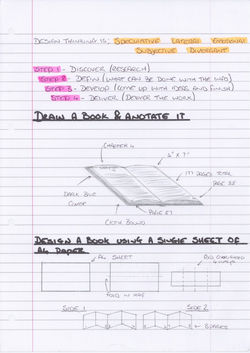 DESIGN THINKING IS: SPECULATIVE LATERAL EMOTIONAL
SUBJECTIVE DIVERGENT
STEP 1 - DISCOVER (RESEARCH)
STEP 2 - DEFINE (WHAT CAN BE DONE WITH THE INFO)
STEP 3 - DEVELOP (COME UP WITH IDEAS AND FINISH)
STEP 4 - DELIVER (DELIVER THE WORK)
DRAW A BOOK & ANOTATE IT
CHAPTER 4
5" x 7"
171 PAGES TOTAL
PAGE 88
DARK BLUE
COVER
PAGE 87
CLOTH BOUND
DESIGN A BOOK USING A SINGLE SHEET OF
A4 PAPER
A4 SHEET
FOLD IN HALF
SIDE 1
SIDE 2
8 PAGES